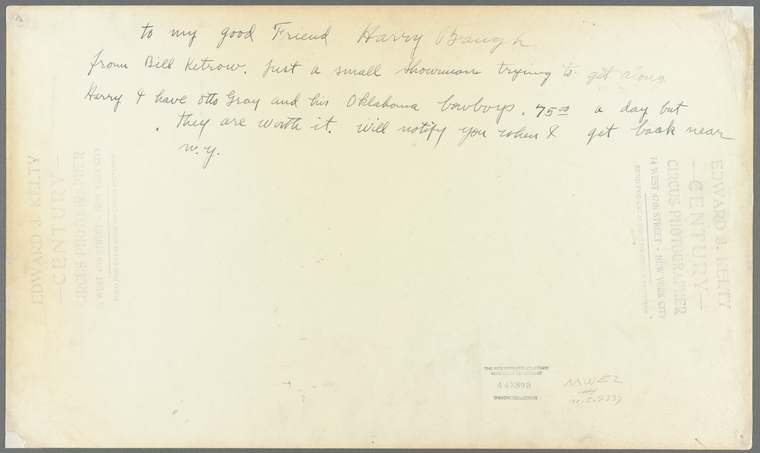 to my good Friend Harry Baugh
from Bill Ketrow. Just a small showman trying to get along
Harry I have Otto Gray and his Oklahoma Cowboys. 75 00 a day but
they are worth it. will notify you when I get back near
N.Y.
EDWARD J. KELTY
—CENTURY—
CIRCUS PHOTOGRAPHER
74 WEST 47th STREET - NEW YORK CITY
EDWARD J. KELTY
—CENTURY—
CIRCUS PHOTOGRAPHER
74 WEST 47th STREET - NEW YORK CITY
THE NEW YORK PUBLIC LIBRARY
44X893
THEATRE COLLECTION
MWEZ